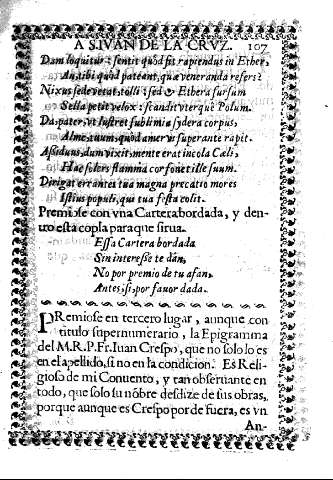 A S. IVAN DE LA CRVZ. 107
Dum loquitur: sentit quòd sit rapiendus in Ether,
An tibi quòd pateant, quæ veneranda refers?
Nixus sede vetat, tolli: sed & Ethera sursum
Sella petit velox: scandit vterque Polum.
Da pater, vt lustret sublimia sydera corpus,
Alme, tuum, quòd amer vi superante rapit.
Assiduus, dum vixit, mente erat incola Cœli,
Huc solers flamma cor fouet ille suum.
Dirigat errantes tua magna precatio mores
Istius populi, qui tua festa colit.
Premiose con vna Cartera bordada, y den-
tro esta copla para que sirua.
Essa Cartera bordada
Sin interesse te dàn,
No por premio de tu afan,
Antes, si, por fauor dada.
PRemiose en tercero lugar, aunque con
titulo supernumerario, la Epigramma
del M.R.P.Fr. Iuan Crespo, que no solo lo es
en el apellido, si no en la condicion. Es Reli-
gioso de mi Conuento, y tan obseruante en
todo, que solo su nõbre desdize de sus obras,
porque aunque es Crespo por de fuera, es vn
An-